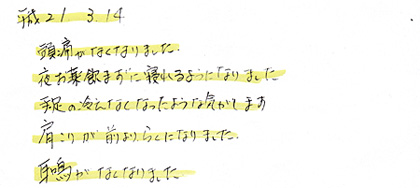 平成21 3.14
頭痛がなくなりました.
夜お薬飲まずに寝れるようになりました
手足の冷えなくなったような気がします
肩こりが前よりらくになりました.
耳鳴がなくなりました.